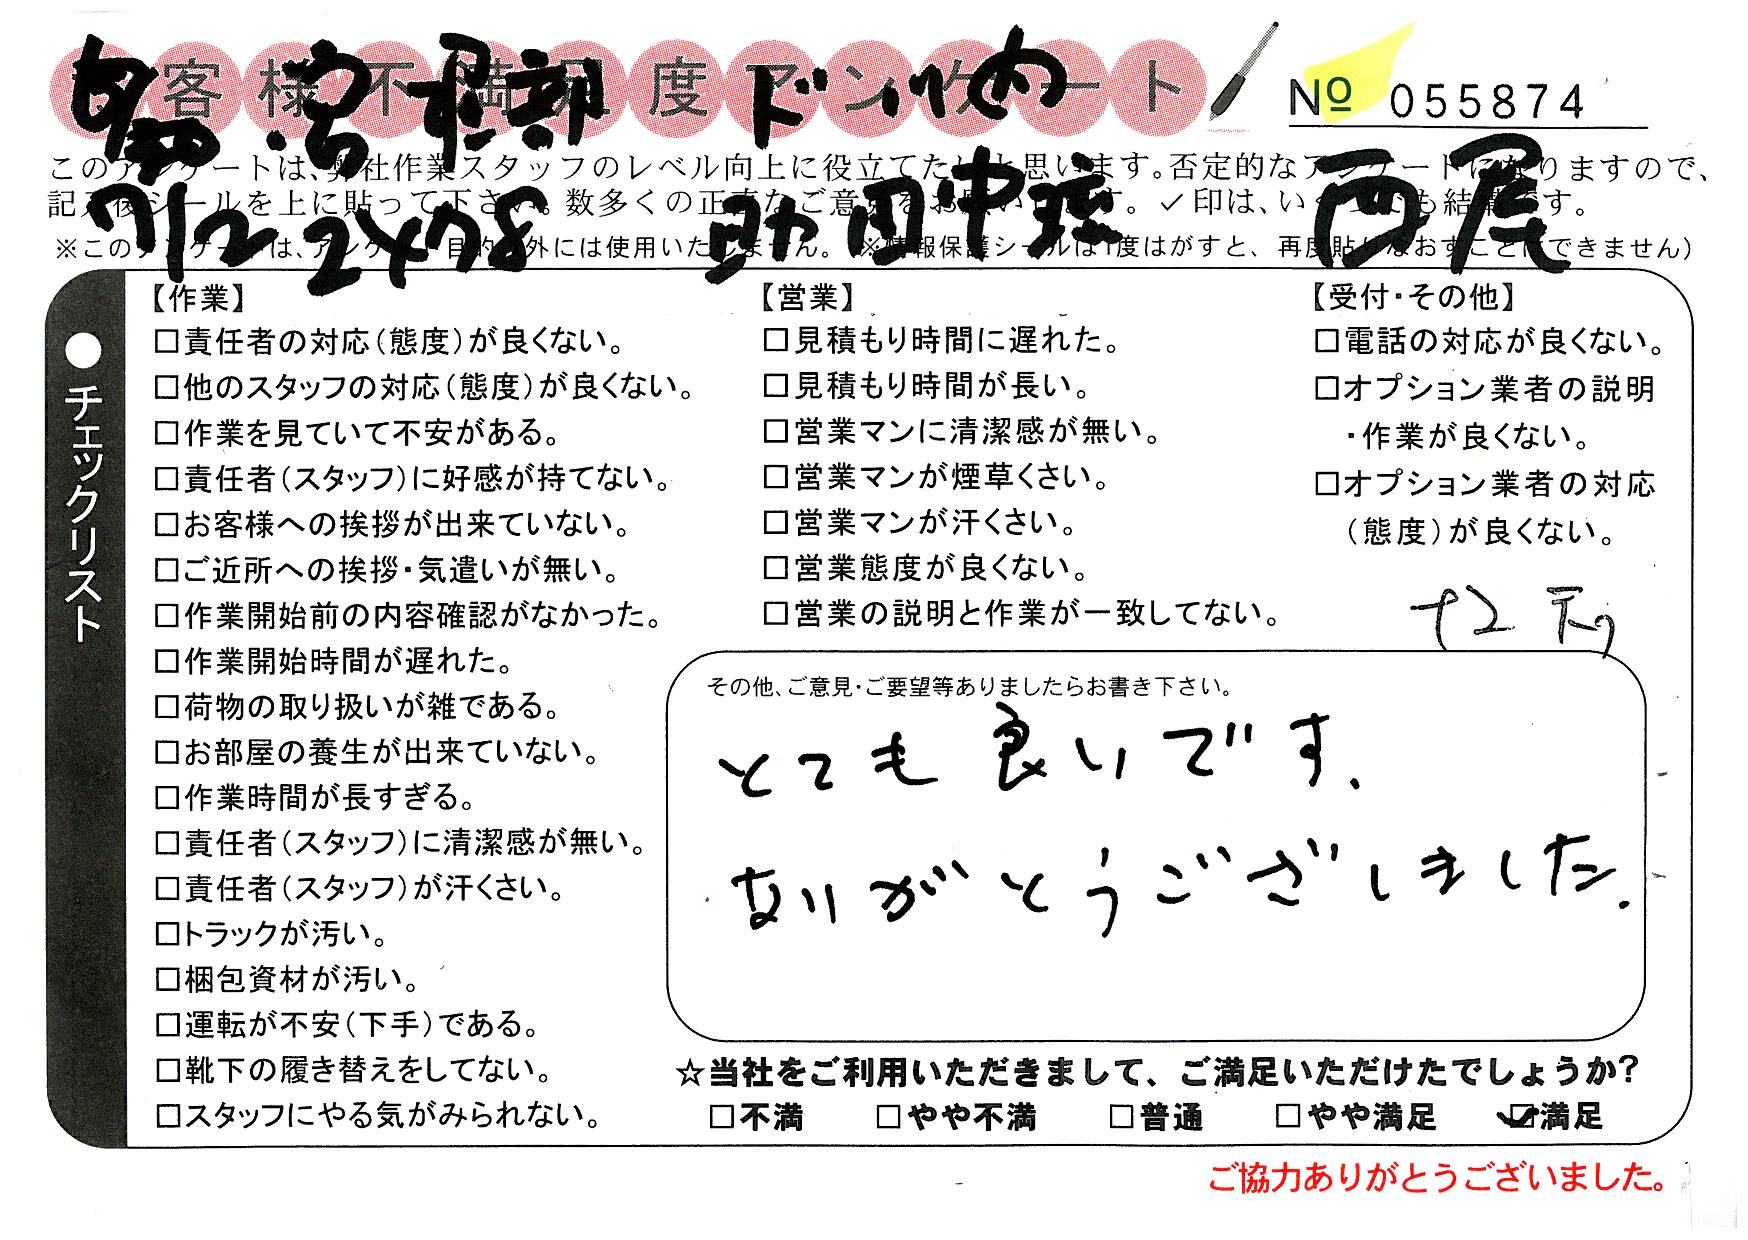 お客様不満足度アンケート
№ 055874
このアンケートは、弊社作業スタッフのレベル向上に役立てたいと思います。否定的なアンケートになりますので、
記入後シールを上に貼って下さい。数多くの正直なご意見をお願いします。✓印は、いくつでも結構です。
※このアンケートは、アンケート目的以外には使用いたしません。（※情報保護シールは1度はがすと、再度貼りなおすことはできません）
7/12 2478
西尾
●チェックリスト
【作業】
□責任者の対応（態度）が良くない。
□他のスタッフの対応（態度）が良くない。
□作業を見ていて不安がある。
□責任者（スタッフ）に好感が持てない。
□お客様への挨拶が出来ていない。
□ご近所への挨拶・気遣いが無い。
□作業開始前の内容確認がなかった。
□作業開始時間が遅れた。
□荷物の取り扱いが雑である。
□お部屋の養生が出来ていない。
□作業時間が長すぎる。
□責任者（スタッフ）に清潔感が無い。
□責任者（スタッフ）が汗くさい。
□トラックが汚い。
□梱包資材が汚い。
□運転が不安（下手）である。
□靴下の履き替えをしてない。
□スタッフにやる気がみられない。
【営業】
□見積もり時間に遅れた。
□見積もり時間が長い。
□営業マンに清潔感が無い。
□営業マンが煙草くさい。
□営業マンが汗くさい。
□営業態度が良くない。
□営業の説明と作業が一致してない。
【受付・その他】
□電話の対応が良くない。
□オプション業者の説明
・作業が良くない。
□オプション業者の対応
（態度）が良くない。
その他、ご意見・ご要望等ありましたらお書き下さい。
とても良いです、
ありがとうございしました.
☆当社をご利用いただきまして、ご満足いただけたでしょうか？
□不満 □やや不満 □普通 □やや満足 ☑満足
ご協力ありがとうございました。